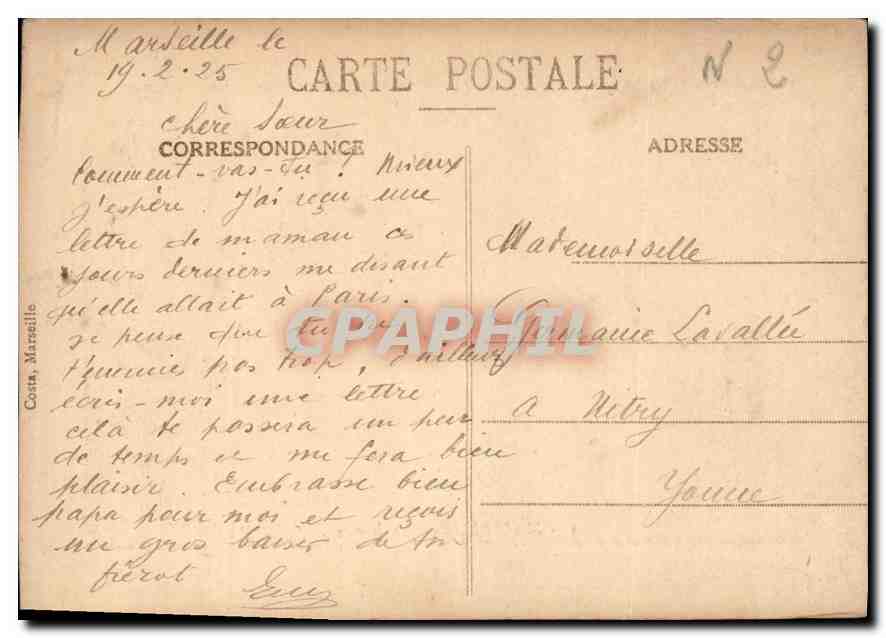 Marseille le
19.2.25
CARTE POSTALE
N 2
chère Sœur
CORRESPONDANCE
Comment-vas-tu ! Mieux
j'espère. J'ai reçu une
lettre de maman ces
jours derniers me disant
qu'elle allait à Paris.
je pense que tu ne
t'ennuies pas trop, d'ailleurs
écris-moi une lettre
celà te passera un peu
de temps et me fera bien
plaisir. Embrasse bien
papa pour moi et reçois
un gros baiser de ton
frérot
ADRESSE
Mademoiselle
Germaine Lavallée
A Nitry
Yonne
Costa, Marseille
CPAPHIL